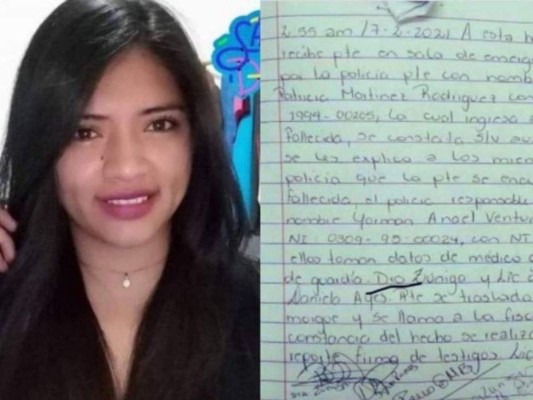 2:55 am /7-2-2021 A esta h
recibe pte en sala de emerge
por la policia pte con nomb
Patricia Martinez Rodriguez con
1994-00205, la cual ingresa
Fallecida, se constata s/v au
se les explico a los miem
policia que la pte se enc
fallecida, el policia responsable
nombre Yoiman Anael Ventur
NI: 0309-95-00024, con NT
ellos toman datos de médico
de guardia Dra Zuniga y Lic
Daniela Pte se traslada
morgue y se llama a la fisc
constancia del hecho se realiza
reporte firma de testigos Lic